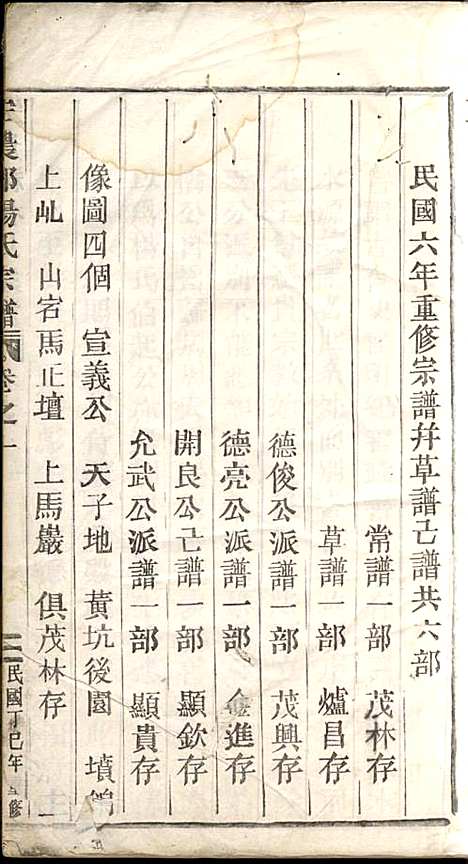 民國六年重修宗譜幷草譜亡譜共六部
常譜一部 茂林存
草譜一部 爐昌存
德俊公派譜一部 茂興存
德亮公派譜一部 金進存
開良公亡譜一部 顯欽存
允武公派譜一部 顯貴存
像圖四個 宣義公 天子地 黃坑後園 墳
上乢 山宕馬正壇 上馬巖 俱茂林存
農郡楊氏宗譜 卷之一 民國丁巳年 修